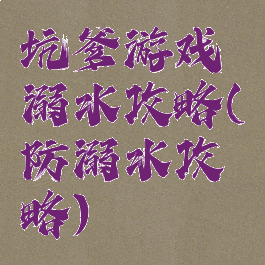 坑爹游戏
溺水攻略(
防溺水攻
略)